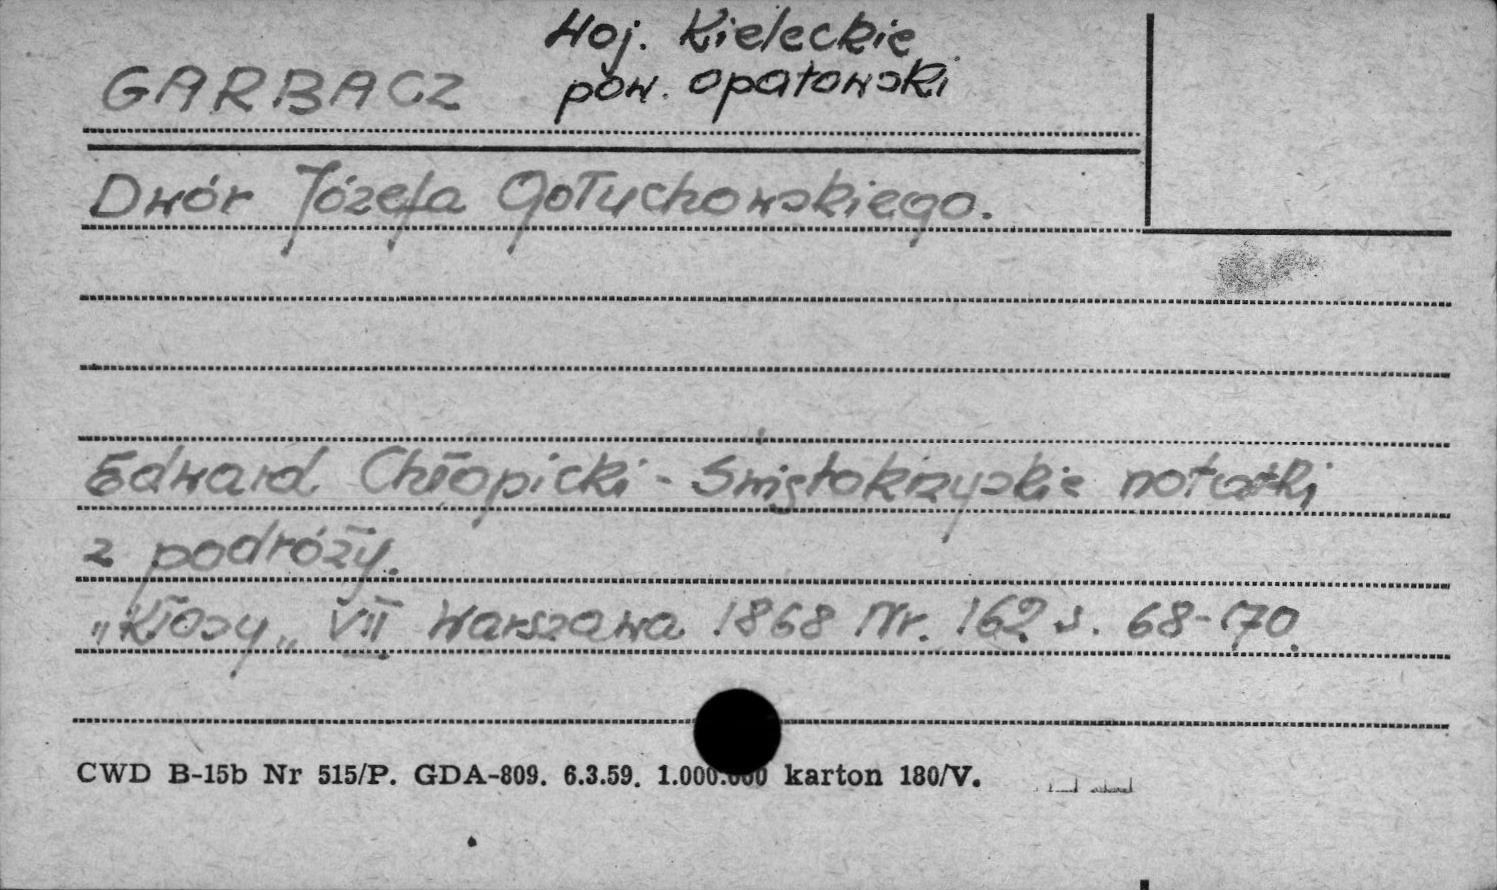 Woj. Kieleckie
GARBACZ pow. opatowski
Dwór Józefa Gołuchowskiego.
Edward Chłopicki - Świętokrzyskie notatki
z podróży.
„Kłosy„ VII Warszawa 1868 Nr. 162 s. 68-70.
CWD B-15b Nr 515/P. GDA-809. 6.3.59. 1.000.000 karton 180/V.